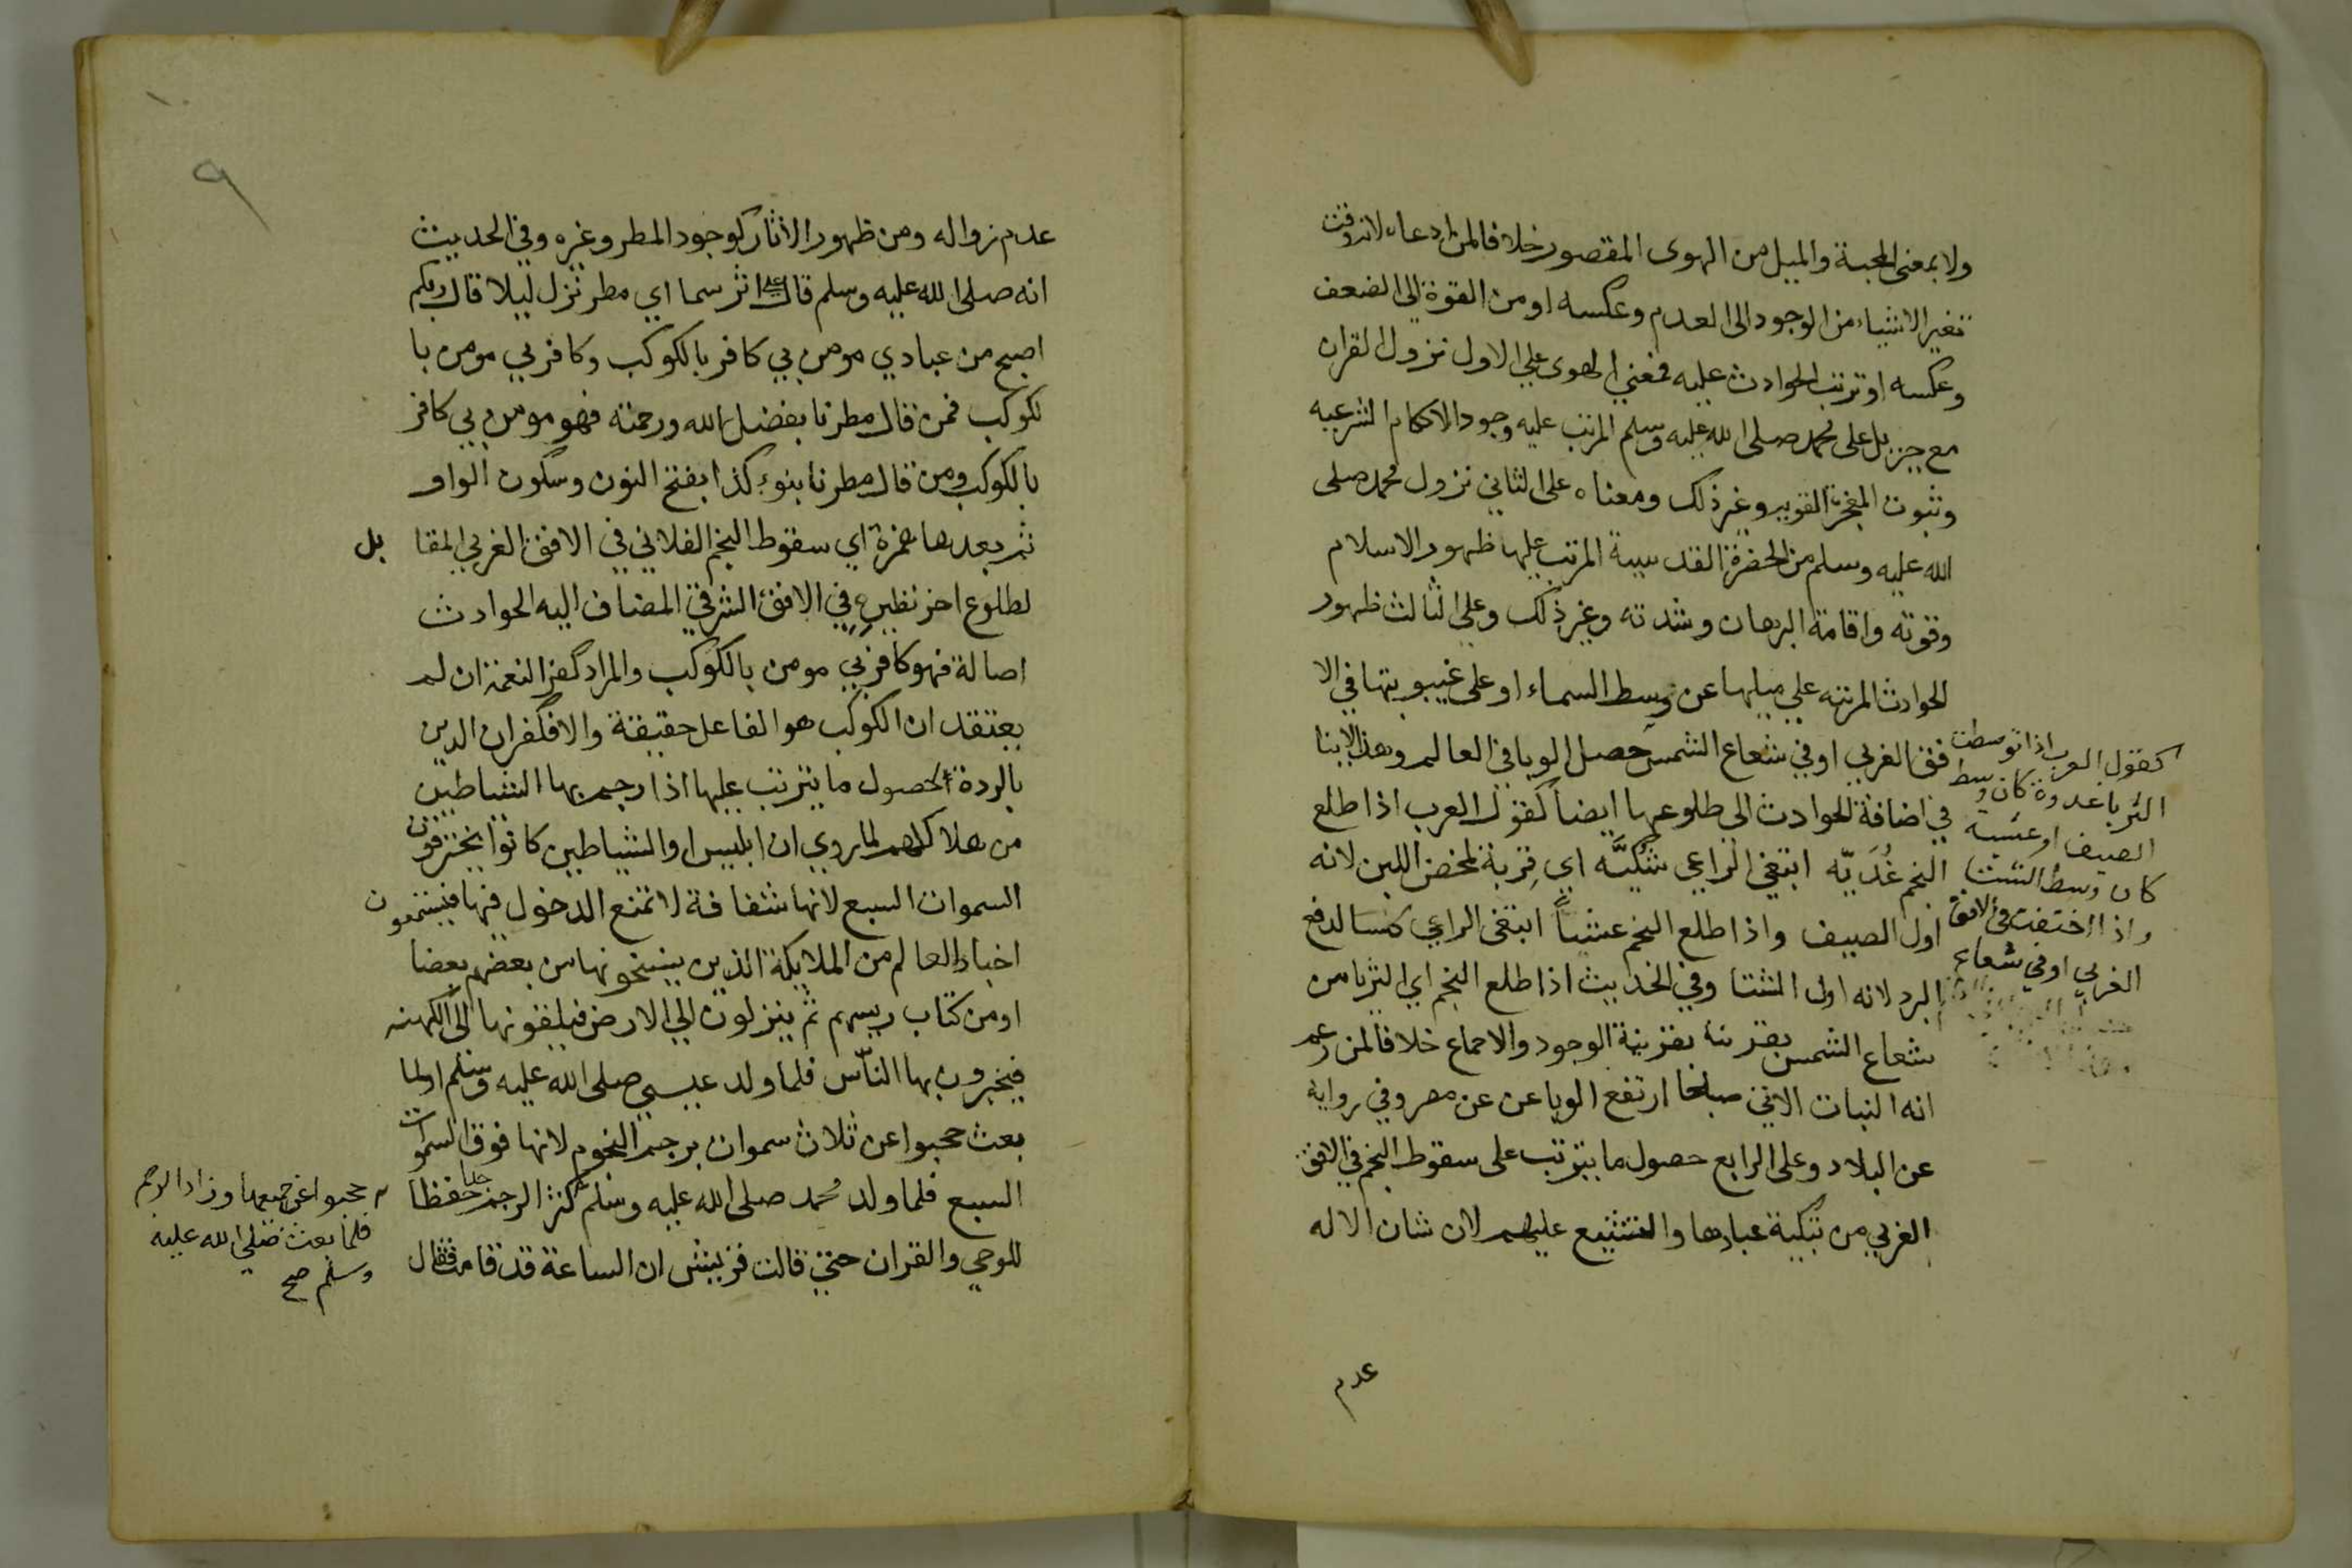 ولا بمعنى المحبة والميل من الهوى المقصور خلافا لمن ادعاه لانه وقت
تغير الاشياء من الوجود الى العدم وعكسه او من القوة الى الضعف
وعكسه او ترتب الحوادث عليه فمعني الهوى علي الاول نزول القران
مع جبريل على محمد صلى الله عليه وسلم المرتب عليه وجود الاحكام الشرعيه
وثبوت المعجزة القويه وغير ذلك ومعناه على الثاني نزول محمد صلى
الله عليه وسلم من الحضرة القدسية المرتب عليها ظهور الاسلام
وقوته واقامة البرهان وشدته وغير ذلك وعلي الثالث ظهور
الحوادث المرتبه علي ميلها عن وسط السماء او على غيبوبتها في الا
فق الغربي او في شعاع الشمس حصل الوبا في العالم وهذا لاينا
في اضافة الحوادث الي طلوعها ايضا كقول العرب اذا طلع
النجم غُدَيّه ابتغي الراعي شُكَيَّه اي قربة لمخض اللبن لانه
اول الصيف واذا طلع النجم عشيا ابتغى الراعي كسا لدفع
البرد لانه اول الشتا وفي الحديث اذا طلع النجم اي الثريا من
شعاع الشمس بقرينة الوجود والاجماع خلافا لمن زعم
انه النبات الاتي صباحا ارتفع الوبا عن عن مصر وفي رواية
عن البلاد وعلى الرابع حصول ما يترتب على سقوط النجم في الافق
الغربي من تبكية عبادها والتشنيع عليهم لان شان الاله
عدم
كقول العرب اذا توسطت
الثريا غدوة كان وسط
الصيف او عشية
كان وسط الشتا
واذا اختفت في الافق
الغربي او في شعاع
١٠
٩
عدم زواله ومن ظهور الاثار كوجود المطر وغيره وفي الحديث
انه صلى الله عليه وسلم قال علي اثر سما اي مطر نزل ليلا قال ربكم
اصبح من عبادي مومن بي كافر بالكوكب وكافر بي مومن با
لكوكب فمن قال مطرنا بفضل الله ورحمته فهو مومن بي كافر
بالكوكب ومن قال مطرنا بنوء كذا بفتح النون وسكون الواو
ثم بعدها همزة اي سقوط النجم الفلاني في الافق الغربي المقا بل
لطلوع اخر نظيره في الافق الشرقي المضاف اليه الحوادث
اصالة فهو كافر بي مومن بالكوكب والمراد كفر النعمة ان لم
يعتقد ان الكوكب هو الفاعل حقيقة والا فكفران الدين
بالردة او حصول ما يترتب عليها اذا رجم بها الشياطين
من هلاكهم لما روي ان ابليس او الشياطين كانوا يخترقون
السموات السبع لانها شفافة لا تمنع الدخول فيها فيستمعون
اخبار العالم من الملايكة الذين ينسخونها من بعضهم بعضا
او من كتاب رييسهم ثم ينزلون الي الارض فيلقونها الى الكهنه
فيخبرون بها الناس فلما ولد عيسي صلى الله عليه وسلم او لما
بعث حجبوا عن ثلاث سموات برجم النجوم لانها فوق السموات
السبع فلما ولد محمد صلى الله عليه وسلم كثر الرجم حفظا
للوحي والقران حتي قالت قريش ان الساعة قد قامت فقال
حجبوا عن جميعها وزاد الرجم
فلما بعث صلي الله عليه
وسلم صح